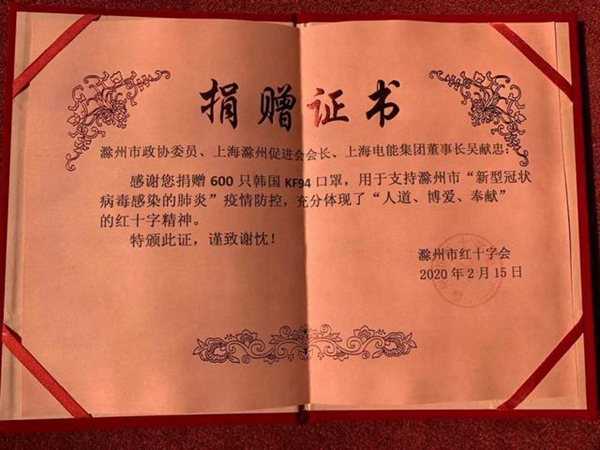 捐赠证书
滁州市政协委员、上海滁州促进会会长、上海电能集团董事长吴献忠：
感谢您捐赠600只韩国KF94口罩，用于支持滁州市“新型冠状
病毒感染的肺炎”疫情防控，充分体现了“人道、博爱、奉献”
的红十字精神。
特颁此证，谨致谢忱！
滁州市红十字会
2020年2月15日